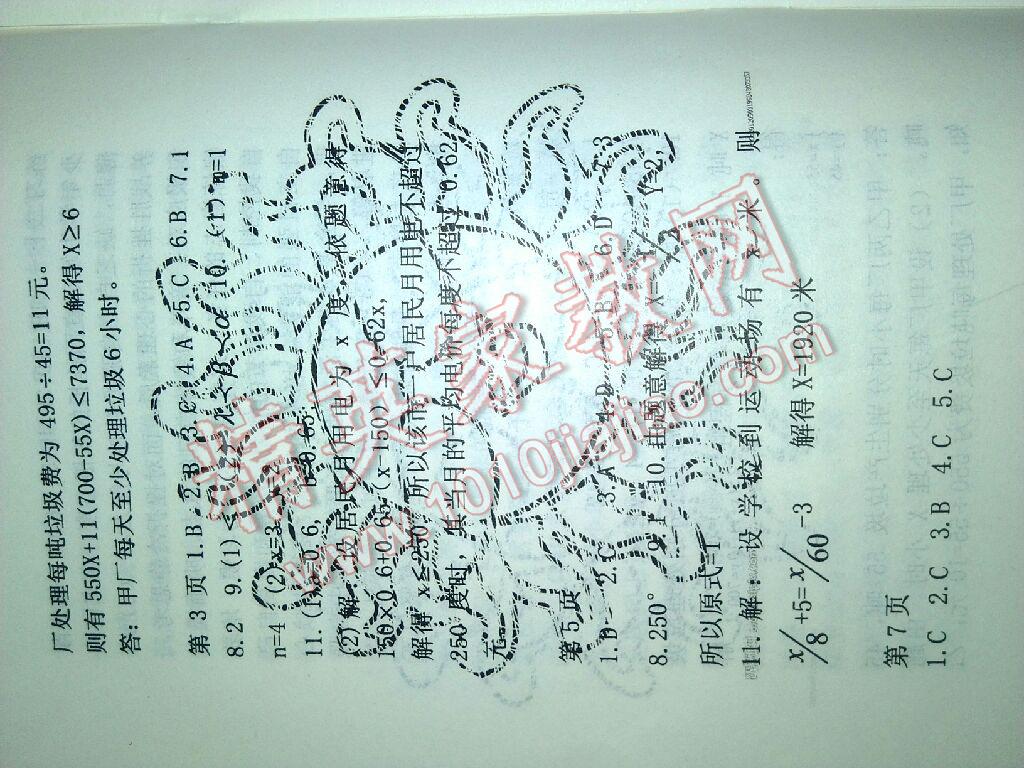 厂处理每吨垃圾费为 495÷45=11 元。
则有 550X+11(700-55X)≤7370，解得 X≥6
答：甲厂每天至少处理垃圾 6 小时。
第 3 页 1.B 2.B 3.C 4.A 5.C 6.B 7.1
8.2 9.(1)< < β<α 10. (1) m=1
n=4 (2) x=3
11.(1)a=0.6, b=0.65.
(2)解：设居民月用电为 x 度，依题意得
150×0.6+0.65(x-150)≤0.62x,
解得 x≤250，所以该市一户居民月用电不超过
250 度时，其当月的平均电价每度不超过 0.62
元。
第 5 页
1.D 2.C 3.A 4.D 5.B 6.D 7.3
8.250° 9.-1 10. 由题意解得 Y=2,
所以原式=-1
11. 解：设学校到运动场有 x 米，则
x/8 +5= x/60 -3 解得 X=1920 米。
第 7 页
1.C 2.C 3.B 4.C 5.C
精英家教网
www.1010jiajiao.com